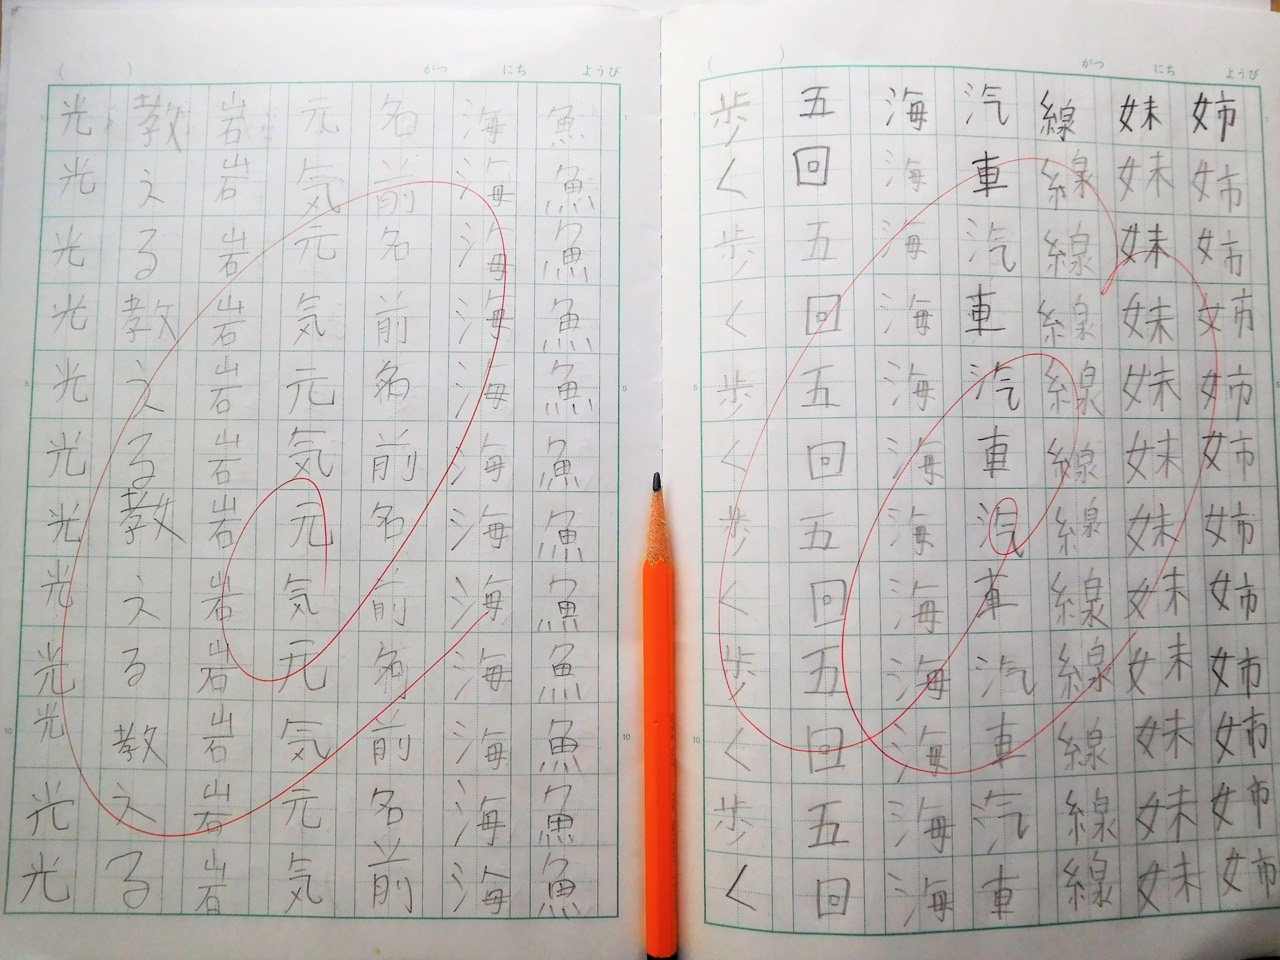 （　　）がつ　にち　ようび
姉姉姉姉姉姉姉姉姉姉姉姉
妹妹妹妹妹妹妹妹妹妹妹妹
線線線線線線線線線線線線
汽車汽車汽車汽車汽車汽車
海海海海海海海海海海海海
五回五回五回五回五回五回
歩く歩く歩く歩く歩く歩く
5
10
（　　）がつ　にち　ようび
5
10
魚魚魚魚魚魚魚魚魚魚魚魚
海海海海海海海海海海海海
名前名前名前名前名前名前
元気元気元気元気元気元気
岩岩岩岩岩岩岩岩岩岩岩岩
教える教える教える教える
光光光光光光光光光光光光
5
10